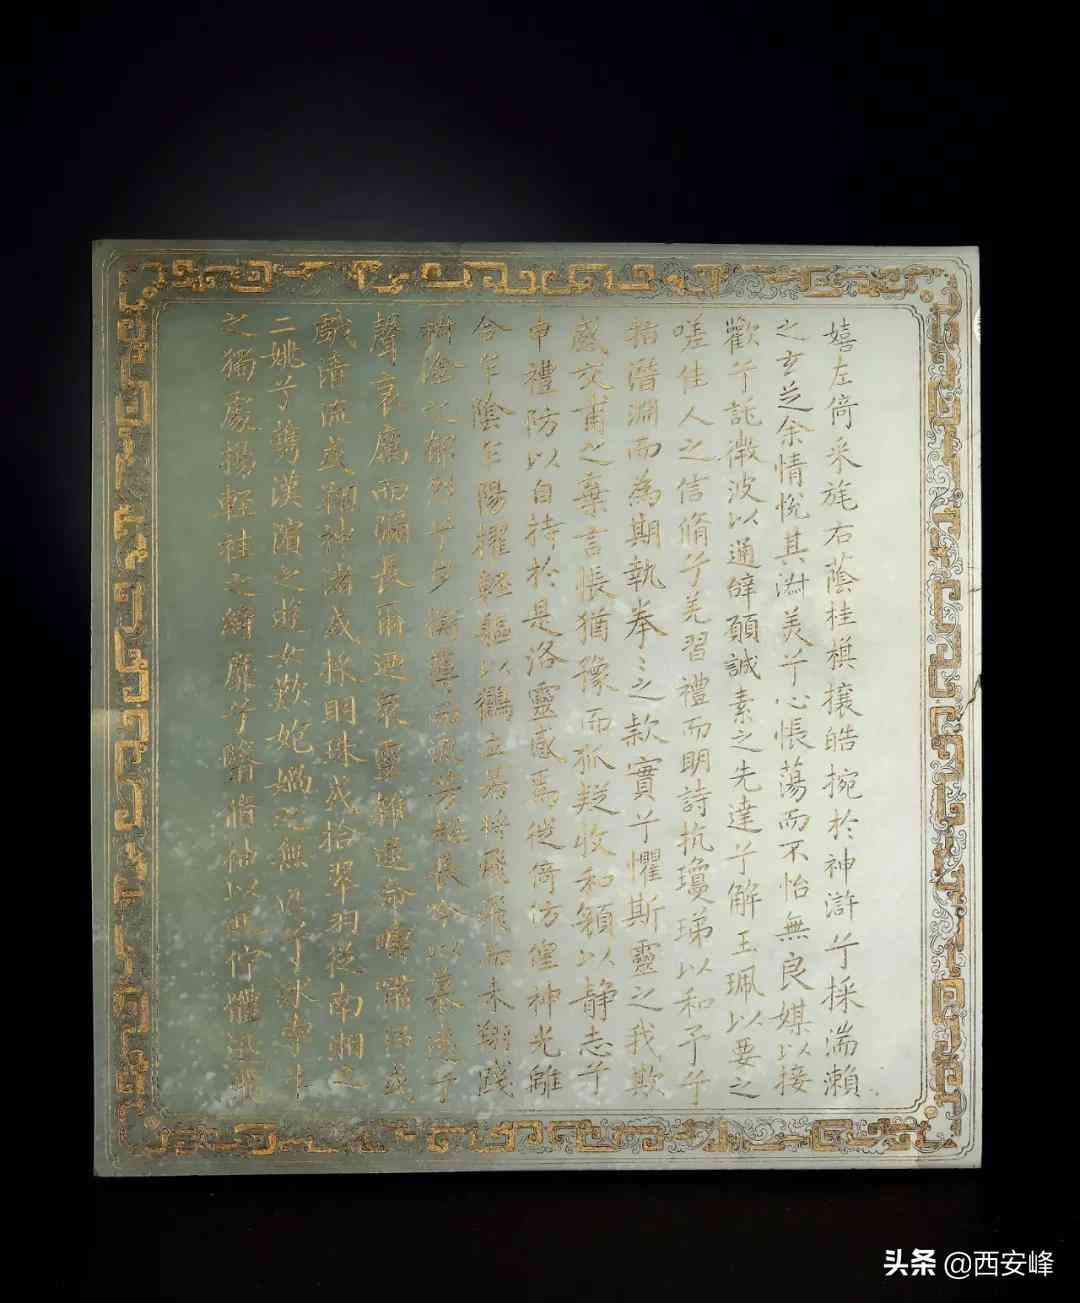 嬉左倚采旄右蔭桂棋攘皓捥於神滸兮採湍瀨
之玄芝余情悅其淑美兮心悵蕩而不怡無良媒以接
歡兮託微波以通辭願誠素之先達兮解玉珮以要之
嗟佳人之信脩兮羌習禮而明詩抗瓊珶以和予兮
指潛淵而為期執拳〻之款實兮懼斯靈之我欺
感交甫之棄言悵猶豫而狐疑收和顏以静志兮
申禮防以自持於是洛靈感焉徙倚仿偟神光離
合乍陰乍陽擢輕軀以鶴立若將飛而未翔踐
椒塗之郁烈兮步蘅薄而流芳超長吟以慕遠兮
聲哀厲而彌長爾迺衆靈雜遝命疇嘯侶或
戲清流或翔神渚或採明珠或拾翠羽從南湘之
二姚兮攜漢濱之遊女歎妃媧之無匹兮詠牽牛
之獨處揚輕袿之綺靡兮翳脩袖以延佇體迅飛
头条 @西安峰